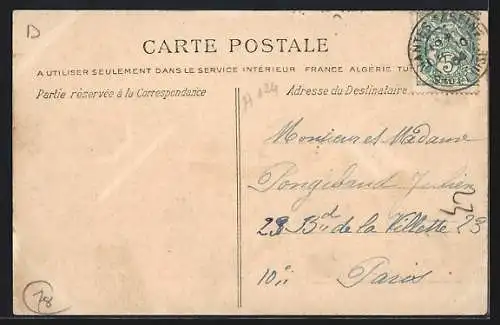 D
CARTE POSTALE
A UTILISER SEULEMENT DANS LE SERVICE INTÉRIEUR FRANCE ALGÉRIE TU
Partie réservée à la Correspondance
A 124
Adresse du Destinataire
Monsieur et Madame
Pongibaud Julien
23 Bd de la Villette 23
10e
Paris
78